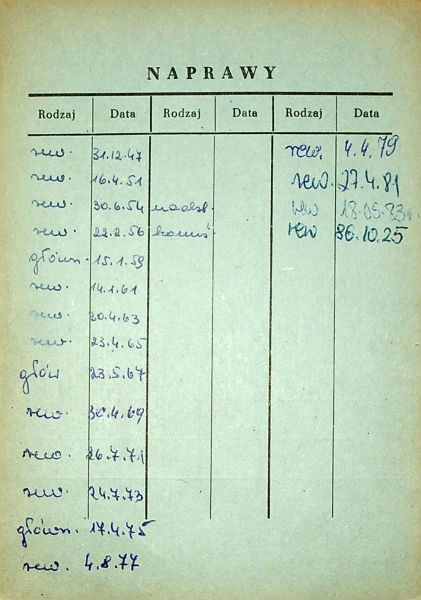 NAPRAWY
Rodzaj Data Rodzaj Data Rodzaj Data
rew. 31.12.47 rew. 4.4.79
rew. 16.4.51 rew. 27.4.81
rew. 30.6.54 rew 18.05.83
rew. 22.2.56 rew 86.10.25
główn. 15.1.59
rew. 14.1.61
rew. 30.4.63
rew. 23.4.65
głów 23.5.67
rew. 30.4.69
rew. 26.7.71
rew. 24.7.73
główn. 17.4.75
rew. 4.8.77